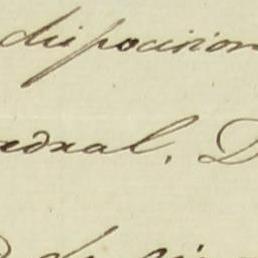 disposicion
edral. D